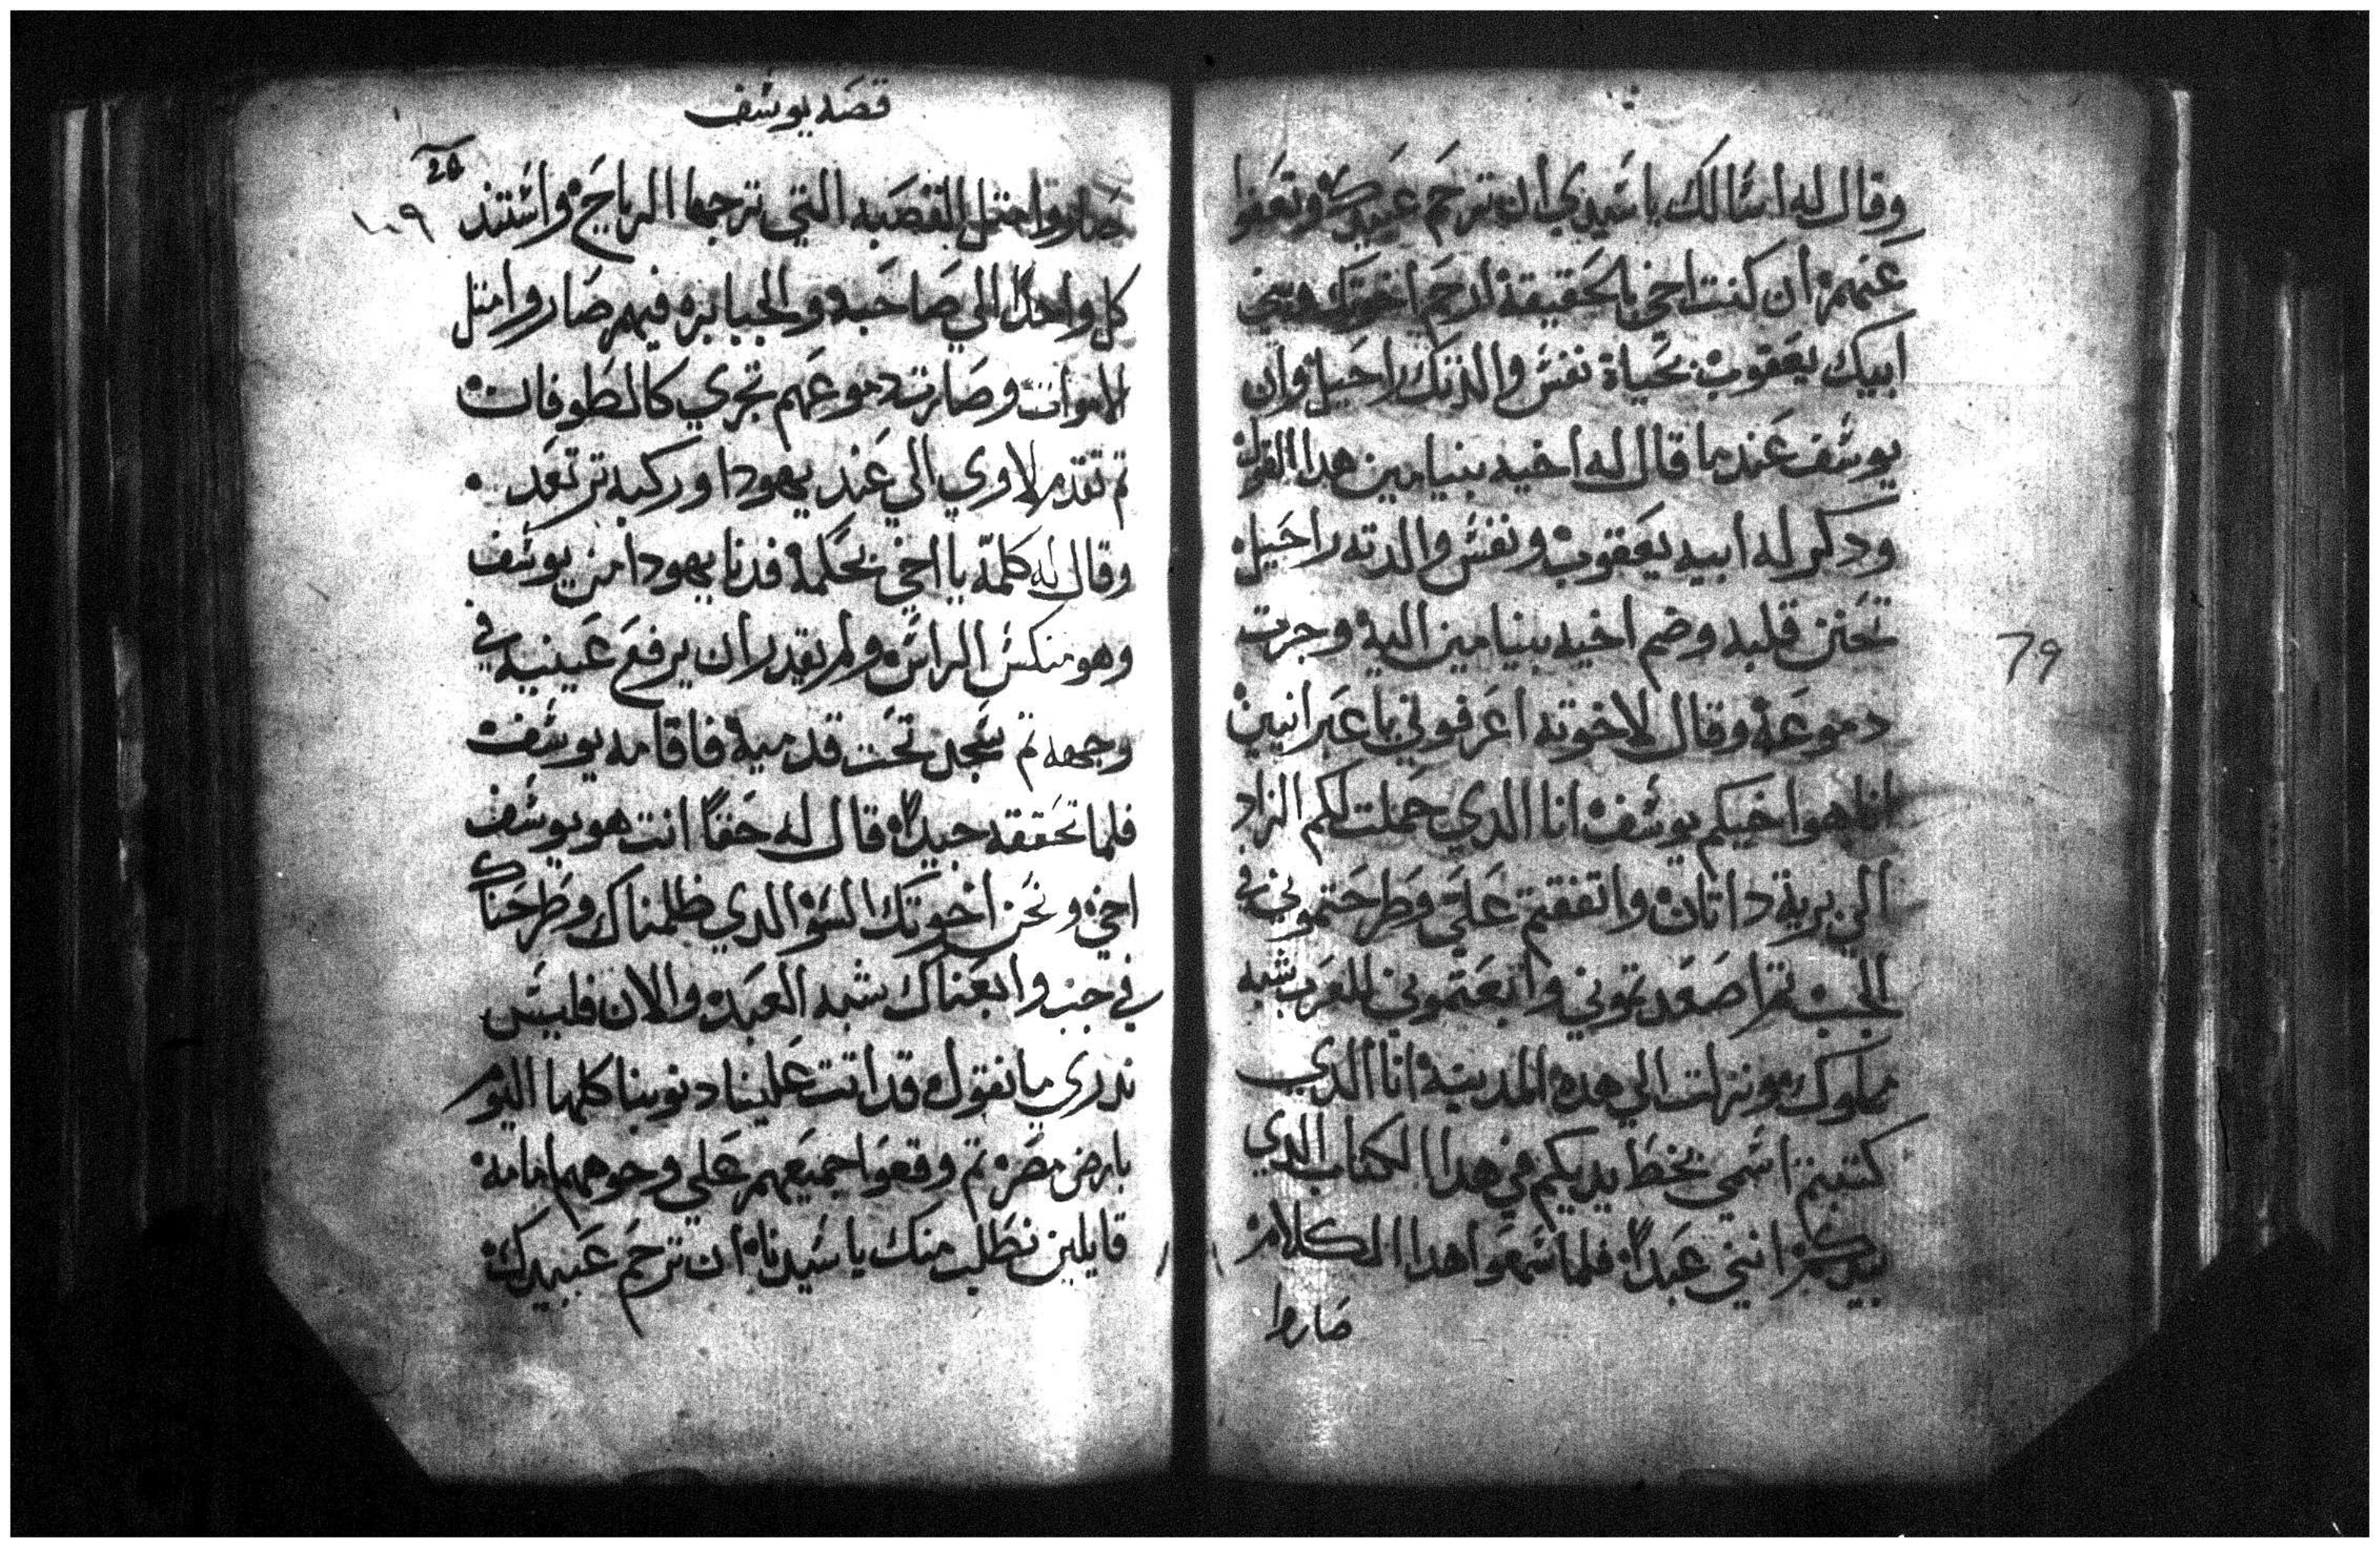 وقال له اسالك يا سيدي ان ترحم عبيدك وتعفوا
عنهم ان كنت اخي بالحقيقة ارحم اخوتك
ابيك يعقوب بحياة نفس والدتك راحيل وان
يوسف عندما قال له اخيه بنيامين هدا القول
ودكر له ابيه يعقوب ونفس والدته راحيل
تحنن قلبه وضم اخيه بنيامين اليه وجرت
دموعه وقال لاخوته اعرفوني يا عبرانيين
انا هوا خيكم يوسف انا الدي حملت لكم الزاد
الي برية داتان واتفقتم علي وطرحتموني في
الجب تم اصعدتموني وابعتموني للعرب شبه
مملوك ونزلت الي هده المدينة انا الدي
كتبتم اسمي بخط يديكم في هدا الكتاب الدي
بيدكم انني عبدا فلما سمعوا هدا الكلام
صاروا
79
قصه يوسف
صاروا متل القصبه التي ترجها الرياح واستند
١٠٩
كل واحدا الي صاحبه والجبابره فيهم صاروا متل
الاموات وصارت دموعهم تجري كالطوفان
تم تقدم لاوي الي عند يهودا وركبه ترتعد
وقال له كلمه يا اخي بحكمه فدنا يهودا من يوسف
وهو منكس الراس ولم يقدر ان يرفع عينيه في
وجهه تم سجد تحت قدميه فاقامه يوسف
فلما تحققه جيدا قال له حقا انت هو يوسف
اخي ونحن اخوتك السو الدي ظلمناك وطرحناك
في جب وابعناك شبه العبد والان فليس
ندري ما نقول قد اتت علينا دنوبنا كلها اليوم
بارض مصر تم وقعوا جميعهم علي وجوههم امامه
قايلين نطلب منك يا سيدنا ان ترحم عبيدك